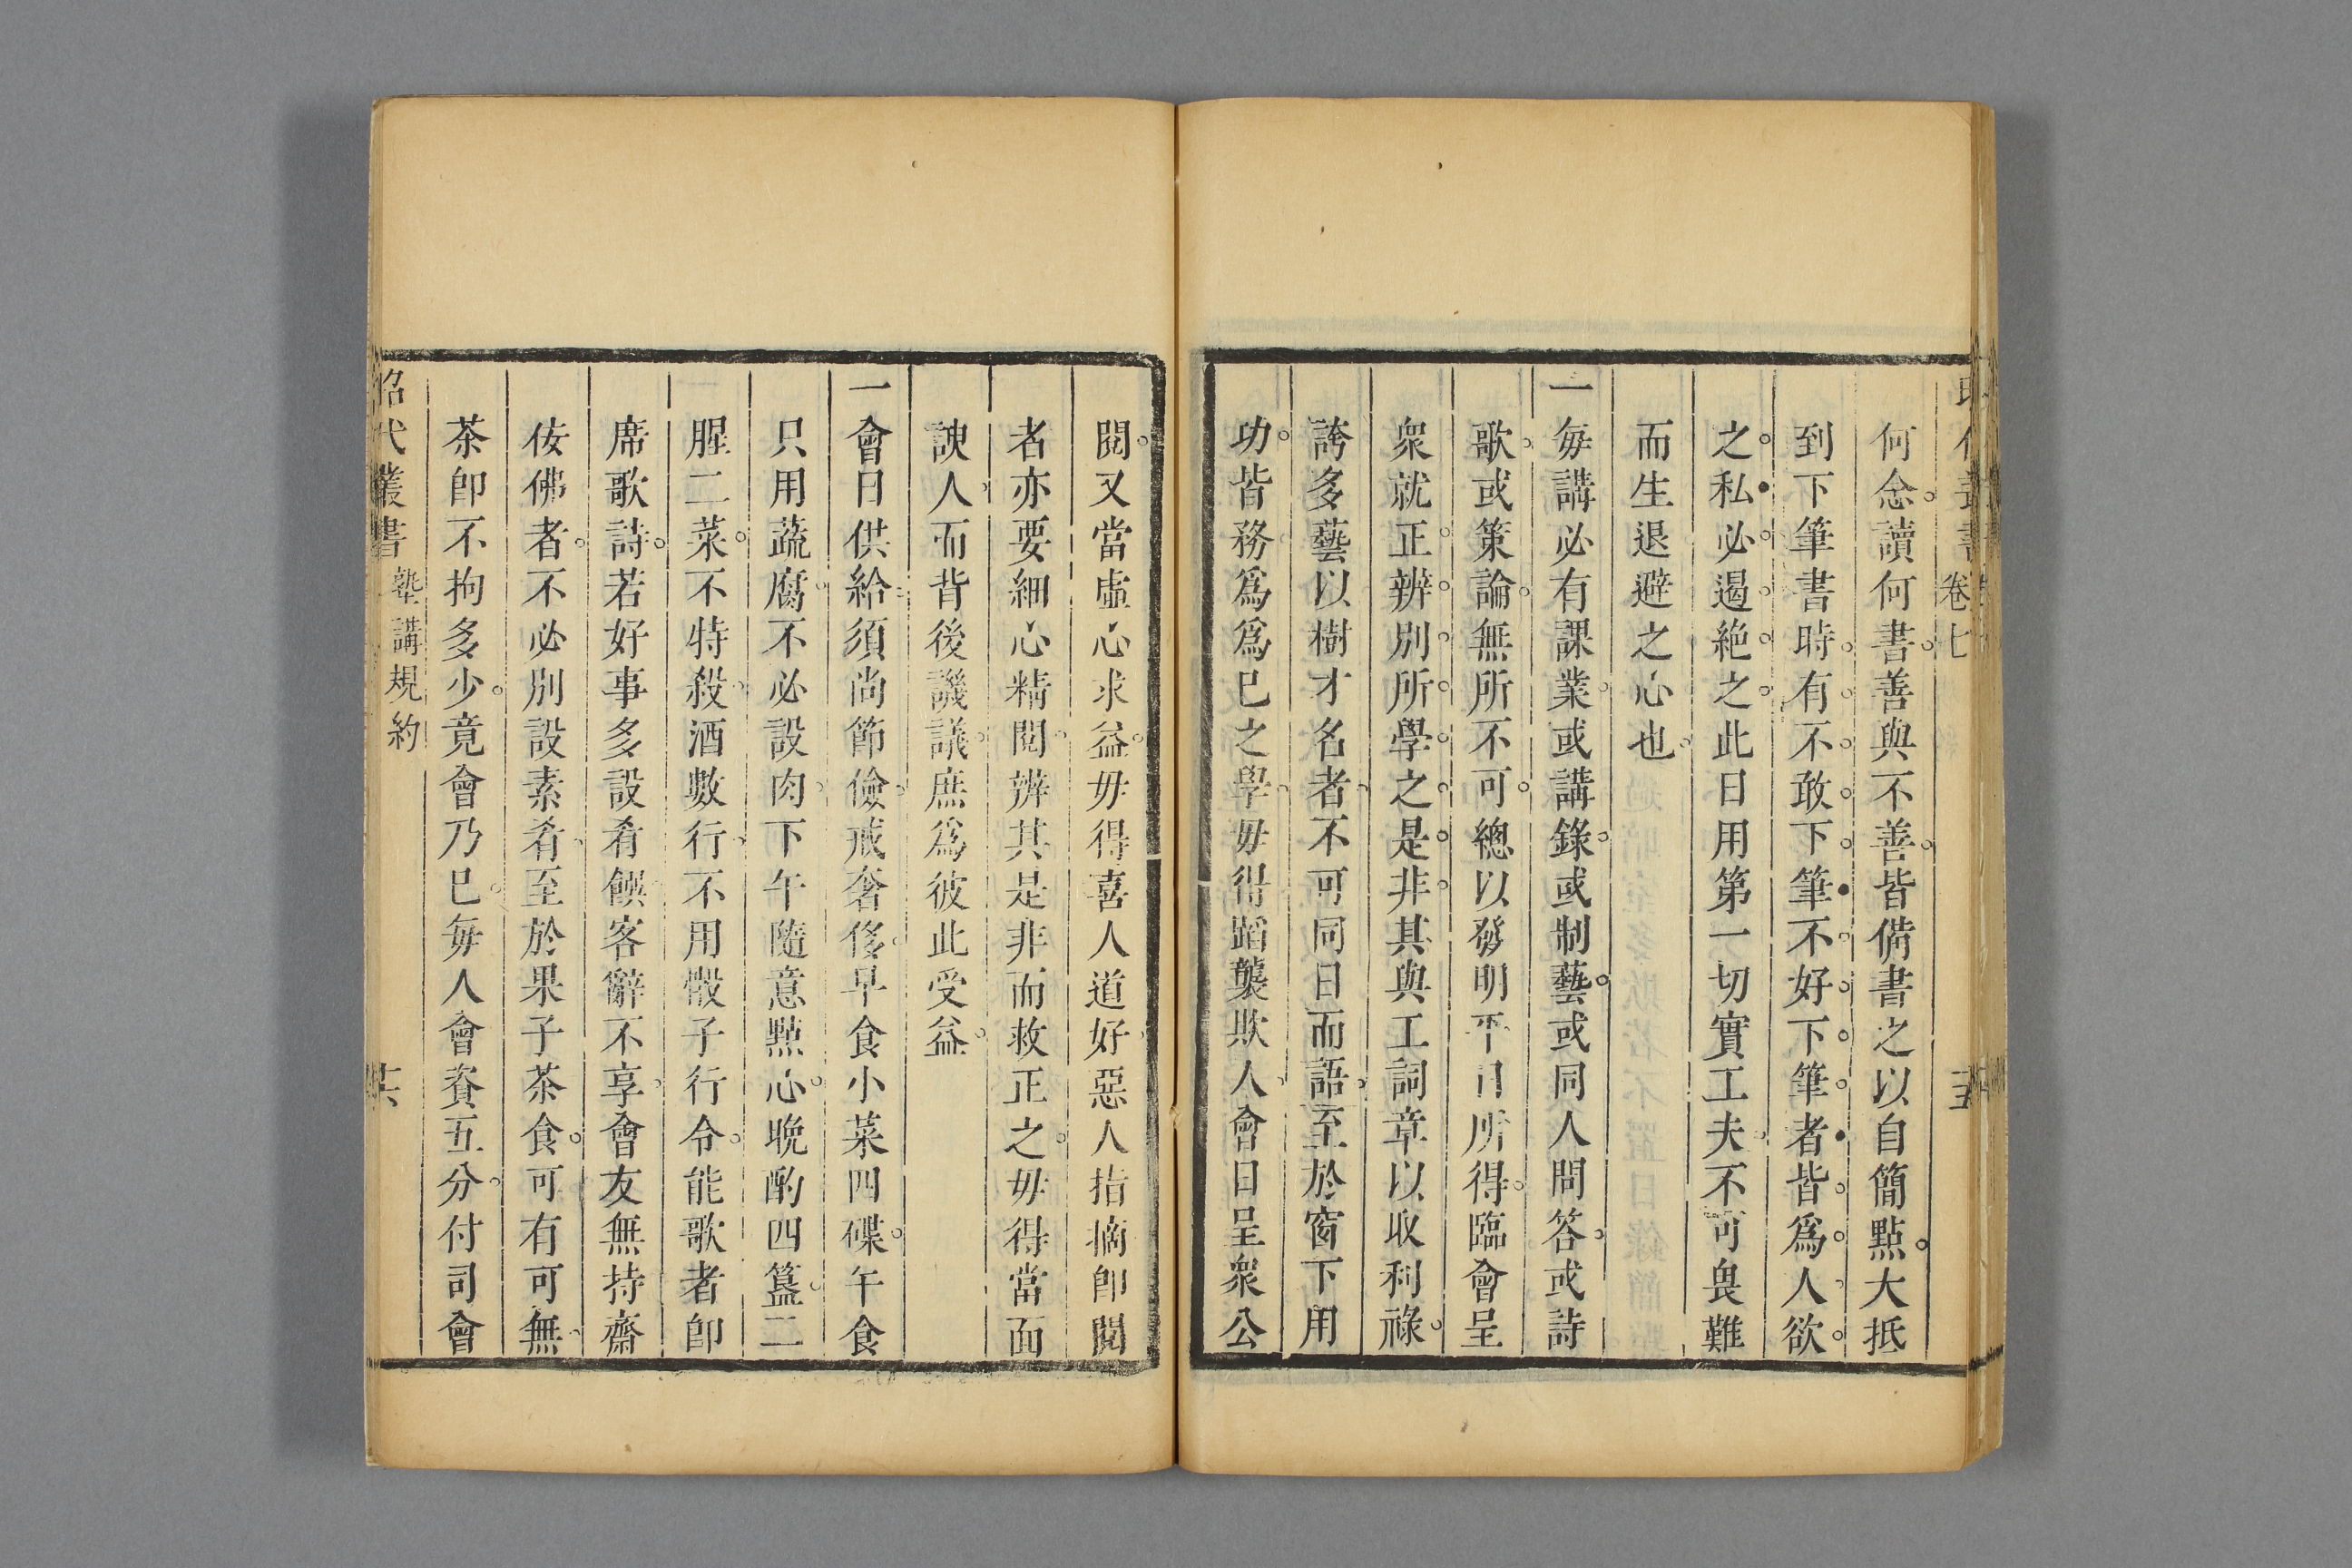 卷七
何念讀何書善與不善皆備書之以自簡點大抵
到下筆書時有不敢下筆不好下筆者皆爲人欲
之私必遏絶之此日用第一切實工夫不可畏難
而生退避之心也
一每講必有課業或講錄或制藝或同人問答或詩
歌或策論無所不可總以發明平日所得臨會呈
衆就正辨別所學之是非其與工詞章以取利祿
誇多藝以樹才名者不可同日而語至於窗下用
功皆務爲爲已之學毋得蹈襲欺人會日呈衆公
閱又當虛心求益毋得喜人道好惡人指摘卽閱
者亦要細心精閱辨其是非而救正之毋得當面
諛人而背後譏議庶爲彼此受益
一會日供給須尚節儉戒奢侈早食小菜四碟午食
只用蔬腐不必設肉下午隨意點心晩酌四簋二
腥二菜不特殺酒數行不用骰子行令能歌者卽
席歌詩若好事多設肴饌客辭不享會友無持齋
佞佛者不必別設素肴至於果子茶食可有可無
茶卽不拘多少竟會乃已每人會資五分付司會
昭代叢書 塾講規約 十六